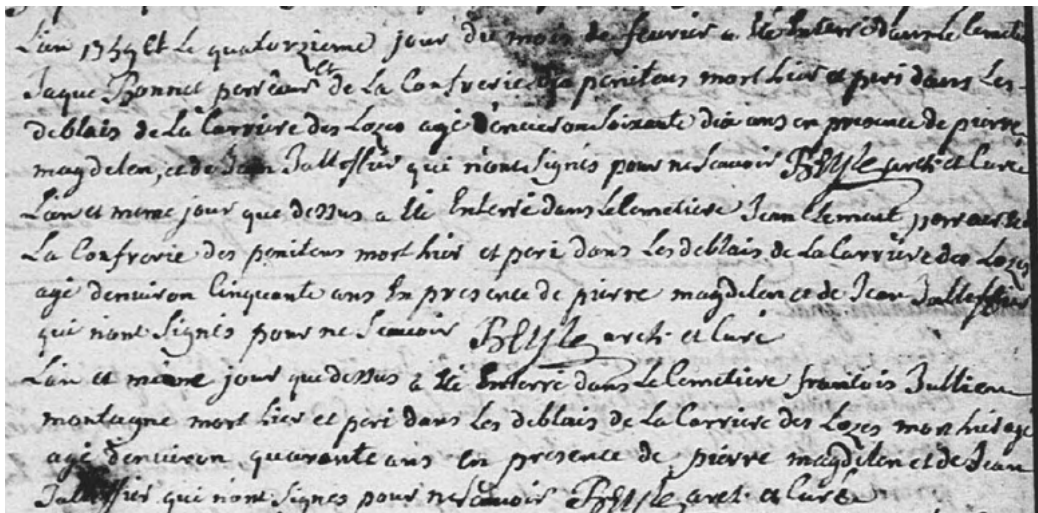 L'an 1749 et Le quatorzieme jour du mois de fevrier a eté Enterré dans le Cemetie
Jaque Bonnet perreour et de La Confrerie des penitens mort hier et peri dans Les
deblais de La Carriere des Lozes agé d'environ soixante dix ans en presence de pierre
magdelen, et de Jean Jalloffier qui n'ont signés pour ne scavoir Beyle arch. et Curé
L'an et meme jour que dessus a eté Enterré dans Le Cemetiere Jean Clement perreour de
La Confrerie des penitens mort hier et peri dans Les deblais de La Carriere des Lozes
agé d'environ Cinquante ans En presence de pierre magdelen et de Jean Jalloffier
qui n'ont signés pour ne scavoir Beyle arch. et Curé
L'an et meme jour que dessus a eté Enterré dans Le Cemetiere francois Jullien
montagne mort hier et peri dans Les deblais de La Carriere des Lozes mort hier agé
agé d'environ quarante ans en presence de pierre magdelen et de Jean
Jalloffier qui n'ont signes pour ne scavoir Beyle arch. et Curé